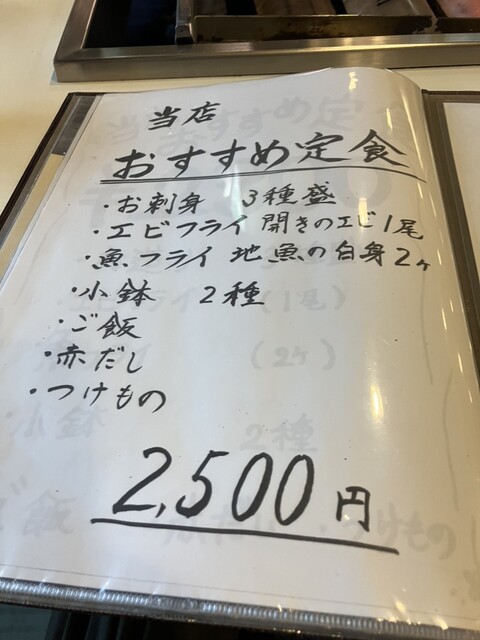 当店
おすすめ定食
・お刺身 3種盛
・エビフライ 開きのエビ1尾
・魚フライ 地魚の白身2ヶ
・小鉢 2種
・ご飯
・赤だし
・つけもの
2,500円